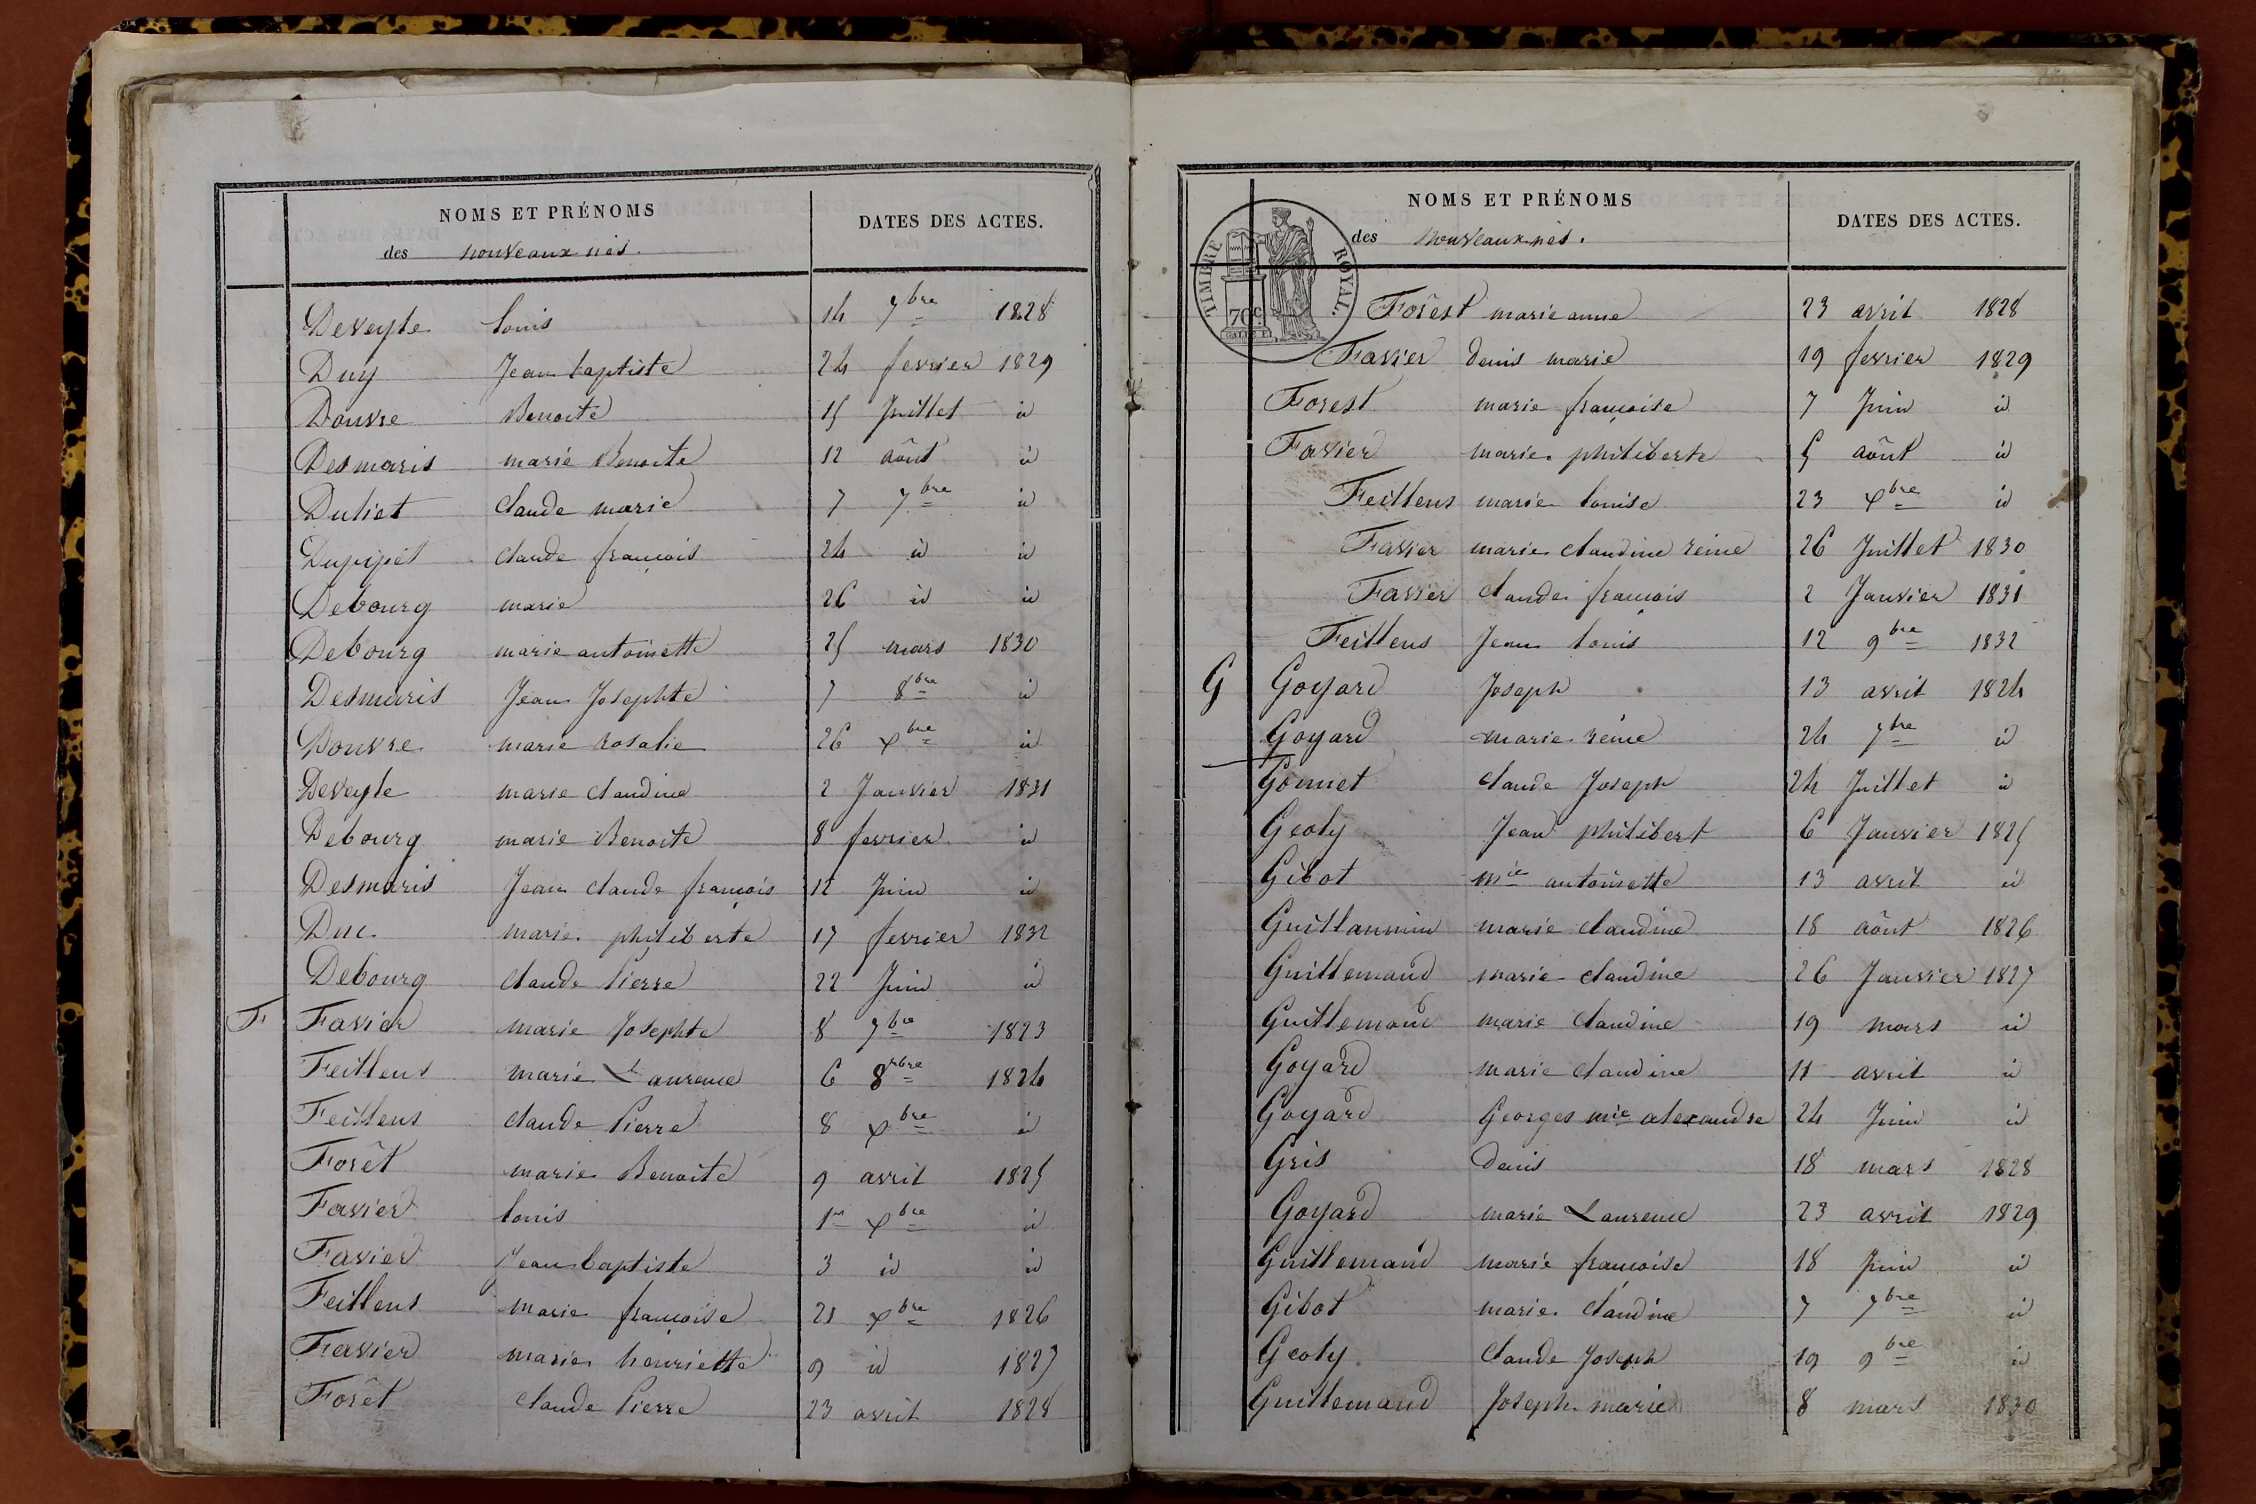 NOMS ET PRÉNOMS
des nouveaux nés.
DATES DES ACTES.
Deveyle louis 14 7bre 1828
Duy Jean baptiste 24 fevrier 1829
Douvre Benoite 15 Juillet id
Desmaris marie Benoite 12 août id
Duliet claude marie 7 7bre id
Dupipet claude françois 24 id id
Debourg marie 26 id id
Debourg marie antoinette 25 mars 1830
Desmaris Jean Josephte 7 8bre id
Douvre marie rosalie 26 xbre id
Deveyle marie claudine 2 Janvier 1831
Debourg marie Benoite 8 fevrier id
Desmaris Jean claude françois 12 Juin id
Duc marie philiberte 17 fevrier 1832
Debourg claude Pierre 22 Juin id
F Favier marie Josephte 8 7bre 1823
Feillens marie Laurence 6 8bre 1824
Feillens claude Pierre 8 xbre id
Forêt marie Benoite 9 avril 1825
Favier louis 1er xbre id
Favier Jean baptiste 3 id id
Feillens marie françoise 21 xbre 1826
Favier marie henriette 9 id 1827
Forêt claude Pierre 23 avril 1828
NOMS ET PRÉNOMS
des nouveaux nés.
DATES DES ACTES.
TIMBRE ROYAL.
70c
Forest marie anne 23 avril 1828
Favier denis marie 19 fevrier 1829
Forest marie françoise 7 Juin id
Favier marie philiberte 5 août id
Feillens marie louise 23 xbre id
Favier marie claudine reine 26 Juillet 1830
Favier claude françois 2 Janvier 1831
Feillens Jean louis 12 9bre 1832
G Goyard Joseph 13 avril 1824
Goyard marie reine 24 7bre id
Gonnet claude Joseph 24 Juillet id
Geoly Jean philibert 6 Janvier 1825
Gibot mie antoinette 13 avril id
Guillaumin marie claudine 18 août 1826
Guillemaud marie claudine 26 Janvier 1827
Guillemaud marie claudine 19 mars id
Goyard marie claudine 11 avril id
Goyard Georges mie alexandre 24 Juin id
Gris denis 18 mars 1828
Goyard marie Laurence 23 avril 1829
Guillemaud marie françoise 18 Juin id
Gibot marie claudine 7 7bre id
Geoly claude Joseph 19 9bre id
Guillemaud Joseph marie 8 mars 1830